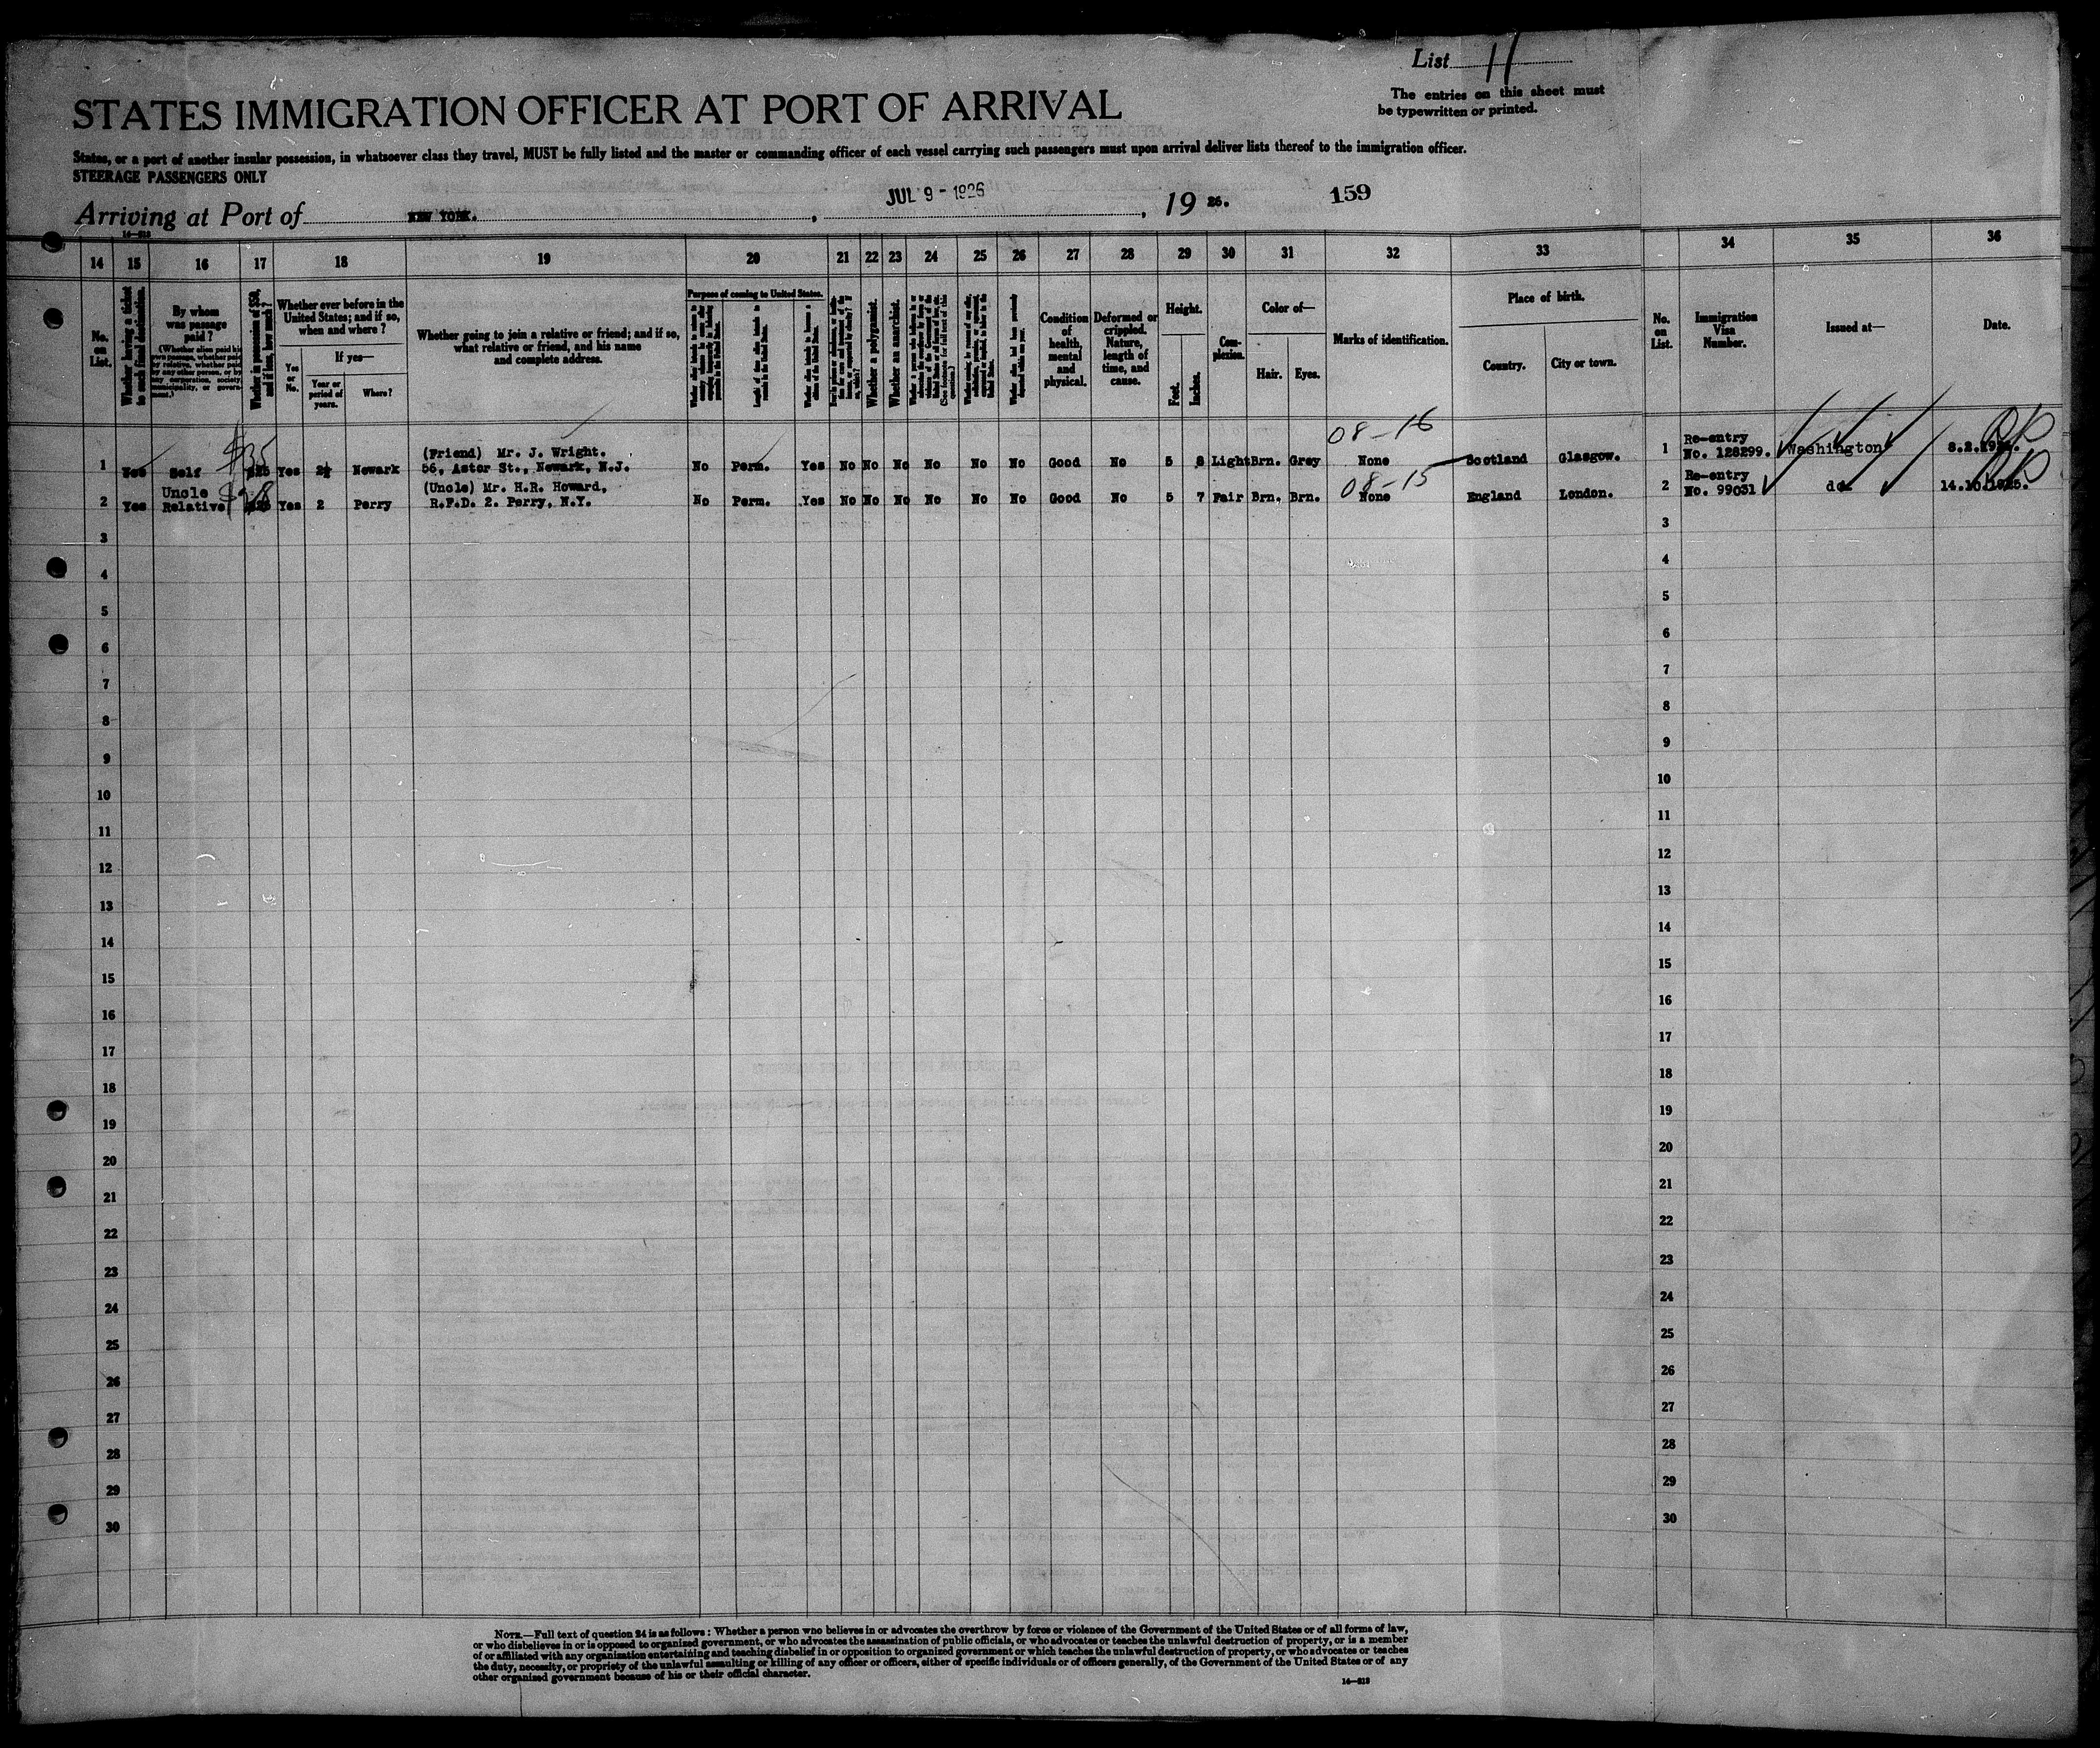 List 11
The entries on this sheet must
be typewritten or printed.
STATES IMMIGRATION OFFICER AT PORT OF ARRIVAL
States, or a port of another insular possession, in whatsoever class they travel, MUST be fully listed and the master or commanding officer of each vessel carrying such passengers must upon arrival deliver lists thereof to the immigration officer.
STEERAGE PASSENGERS ONLY
Arriving at Port of NEW YORK. , JUL 9 - 1926 , 19 26. 159
14 15 16 17 18 19 20 21 22 23 24 25 26 27 28 29 30 31 32 33 34 35 36
No. on List.
Whether having a ticket to such final destination.
By whom was passage paid?
(Whether alien paid his own passage, whether paid by relative, whether paid by any other person, or by any corporation, society, municipality, or government.)
Whether in possession of $50, and if less, how much?
Whether ever before in the United States; and if so, when and where?
Yes or No.
If yes—
Year or period of years.
Where?
Whether going to join a relative or friend; and if so, what relative or friend, and his name and complete address.
Purpose of coming to United States.
Length of time alien intends to remain in the United States.
Whether alien intends to become a citizen of the United States.
Whether a polygamist.
Whether an anarchist.
Condition of health, mental and physical.
Deformed or crippled. Nature, length of time, and cause.
Height.
Feet. Inches.
Complexion.
Color of—
Hair. Eyes.
Marks of identification.
Place of birth.
Country. City or town.
No. on List.
Immigration Visa Number.
Issued at—
Date.
08-16
(Friend) Mr. J. Wright. Re-entry
1 Yes Self $35 Yes 2½ Newark 56, Astor St., Newark, N.J. No Perm. Yes No No No No No No Good No 5 8 Light Brn. Grey None Scotland Glasgow. 1 No. 128299. Washington
Uncle (Uncle) Mr. H.R. Howard, 08-15 Re-entry
2 Yes Relative Yes 2 Perry R.F.D. 2. Perry, N.Y. No Perm. Yes No No No No No No Good No 5 7 Fair Brn. Brn. None England London. 2 No. 99031 do. 14.10.1925.
3 3
4 4
5 5
6 6
7 7
8 8
9 9
10 10
11 11
12 12
13 13
14 14
15 15
16 16
17 17
18 18
19 19
20 20
21 21
22 22
23 23
24 24
25 25
26 26
27 27
28 28
29 29
30 30
NOTE.—Full text of question 24 is as follows: Whether a person who believes in or advocates the overthrow by force or violence of the Government of the United States or of all forms of law,
or who disbelieves in or is opposed to organized government, or who advocates the assassination of public officials, or who advocates or teaches the unlawful destruction of property, or is a member
of or affiliated with any organization entertaining and teaching disbelief in or opposition to organized government or which teaches the unlawful destruction of property, or who advocates or teaches
the duty, necessity, or propriety of the unlawful assaulting or killing of any officer or officers, either of specific individuals or of officers generally, of the Government of the United States or of any
other organized government because of his or their official character.